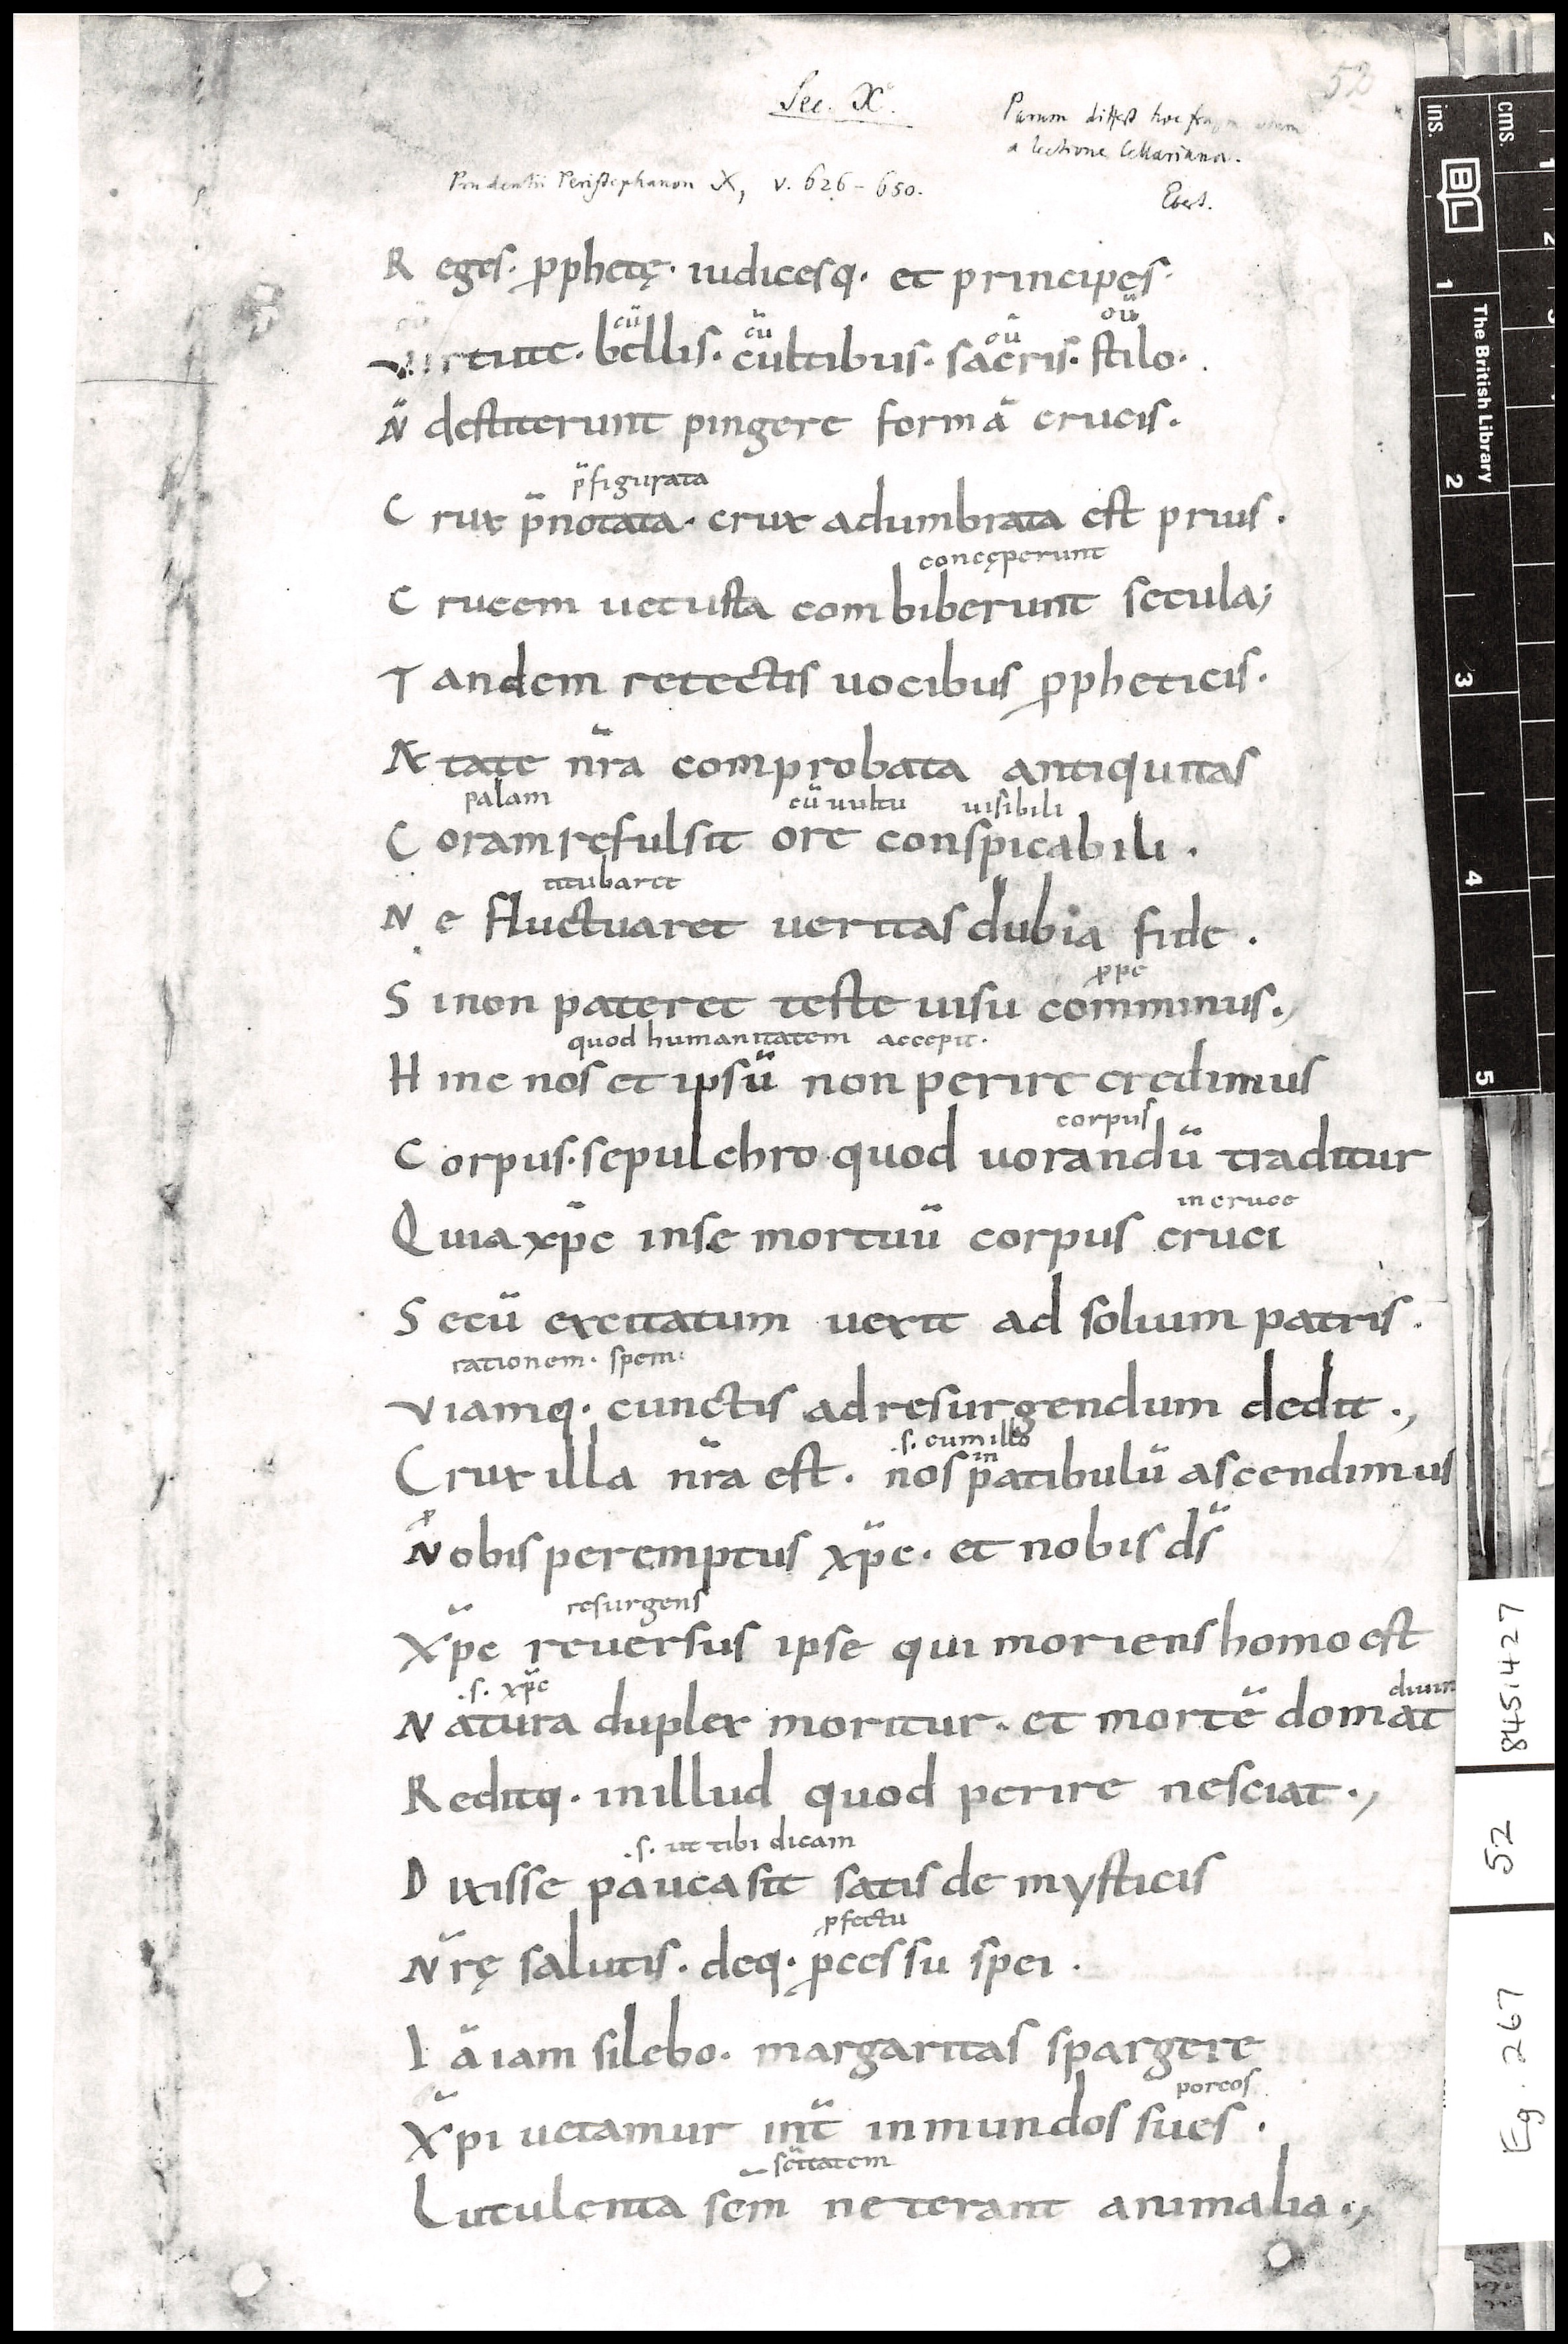 52
Sec. X.
Parum differt hoc
a lectione Cellariana.
Ebert.
Prudentii Peristephanon X, v. 626 - 650.
R eges· ꝓphetę· iudicesq· et principes·
cū cū cū cū
uirtute· bellis· cultibus· sacris· stilo·
N̄ destiterunt pingere formā crucis·
p̄figurata
C rux p̄notata· crux adumbrata est prius·
concęperunt
C rucem uetusta combiberunt secula;
T andem retectis uocibus ꝓpheticis·
Ae tate nr̄a comprobata antiquitas
palam cū uultu uisibili
C oram refulsit ore conspicabili·
titubaret
N e fluctuaret ueritas dubia fide·
ꝓpe
S i non pateret teste uisu comminus.,
quod humanitatem accepit·
H inc nos et ipsū non perire credimus
corpus
C orpus· sepulchro quod uorandū traditur
in cruce
Q uia xp̄c in se mortuū corpus cruci
S ecū excitatum uexit ad solium patris·
rationem· spem·
Viamq· cunctis ad resurgendum dedit.,
.s. cum illo
in
Crux illa nr̄a est· nos patibulū ascendimus
ꝓ
Nobis peremptus xp̄c· et nobis ds̄
resurgens
Xp̄c reuersus ipse qui moriens homo est
.s. xp̄c
Natura duplex moritur· et mortē domat
Reditq· in illud quod perire nesciat.,
.s. ut tibi dicam
D ixisse pauca sit satis de mysticis
ꝓfectu
Nr̄ę salutis· deq· ꝓcessu spei·
I ā iam silebo· margaritas spargere
porcos
Xp̄i uetamur int̄ inmundos sues·
sc̄itatem
Lutulenta sc̄m ne terant animalia.,
ins.
cms.
BL
The British Library
1
2
3
4
5
1
2
845,427
52
Eg. 267